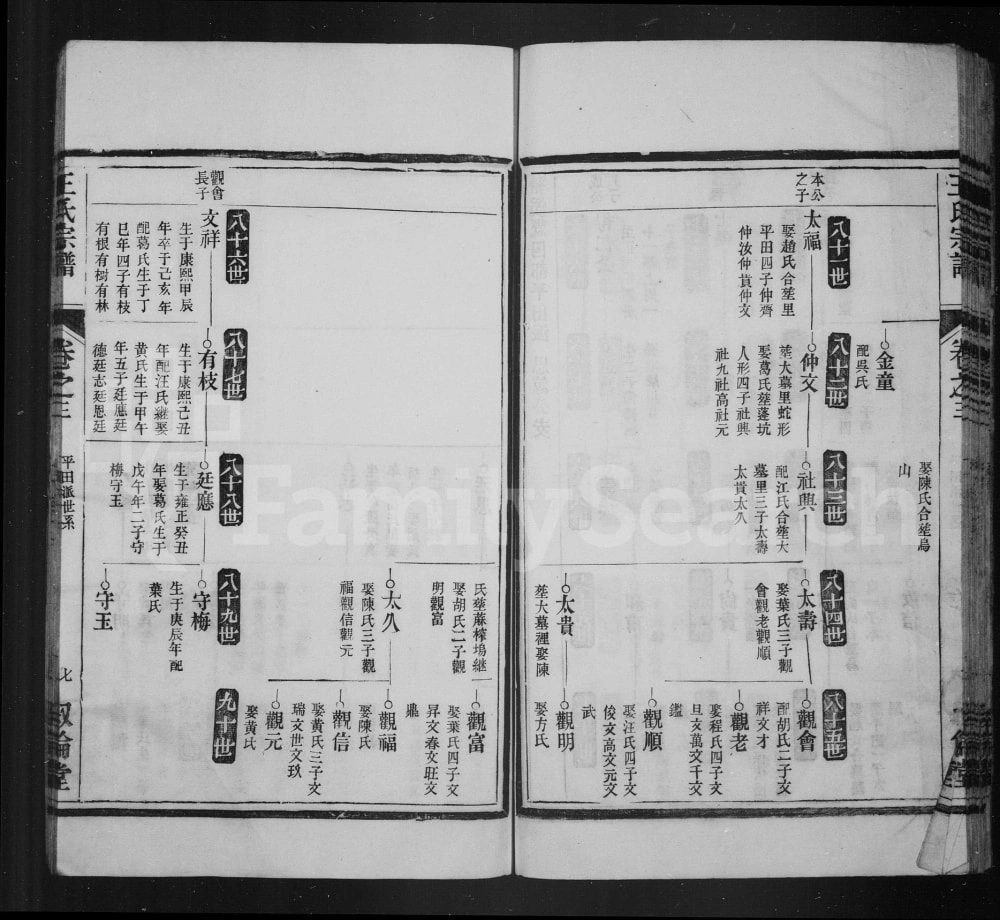 王氏宗譜
卷之三
娶陳氏合塟烏
山
金童
配吳氏
八十一世
八十二世
八十三世
八十四世
八十五世
本公
之子
太福
娶趙氏合塟里
平田四子仲齊
仲汝仲貴仲文
仲文
塟大墓里蛇形
娶葛氏塟蓬坑
人形四子社興
社九社高社元
社興
配江氏合塟大
墓里三子太壽
太貴太久
太壽
娶葉氏三子觀
會觀老觀順
觀會
配胡氏二子文
祥文才
觀老
娶程氏四子文
旦文萬文千文
鑑
觀順
娶汪氏四子文
俊文高文元文
武
太貴
塟大墓裡娶陳
觀明
娶方氏
氏塟蔴榨塢継
娶胡氏二子觀
明觀富
觀富
娶葉氏四子文
昇文春文旺文
鼎
太久
娶陳氏三子觀
福觀信觀元
觀福
娶陳氏
觀信
娶黄氏三子文
瑞文世文玖
觀元
娶黄氏
八十六世
八十七世
八十八世
八十九世
九十世
觀會
長子
文祥
生于康熙甲辰
年卒于己亥年
配葛氏生于丁
巳年四子有枝
有根有树有林
有枝
生于康熙己丑
年配汪氏継娶
黄氏生于甲午
年五子廷應廷
德廷志廷恩廷
廷應
生于雍正癸丑
年娶葛氏生于
戊午年二子守
梅守玉
守梅
生于庚辰年配
葉氏
守玉
王氏宗譜
卷之三
平田派世系
七
叙倫堂
FamilySearch